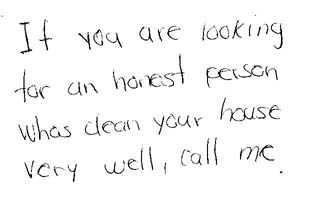 If you are looking
for an honest person
whos clean your house
very well, call me.